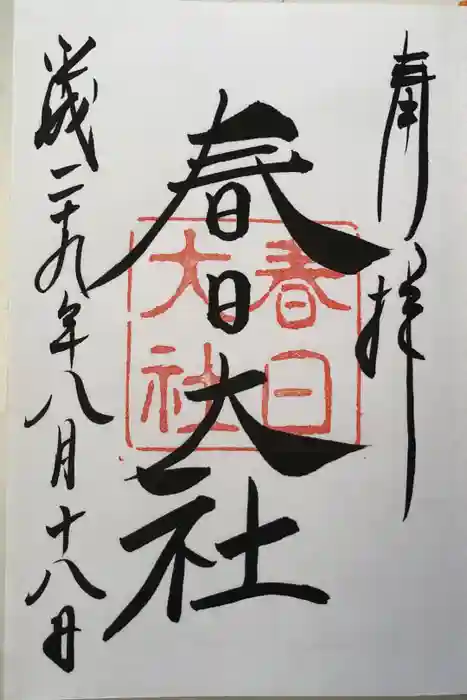 奉拝
春日大社
春日大社
平成二十九年八月十八日